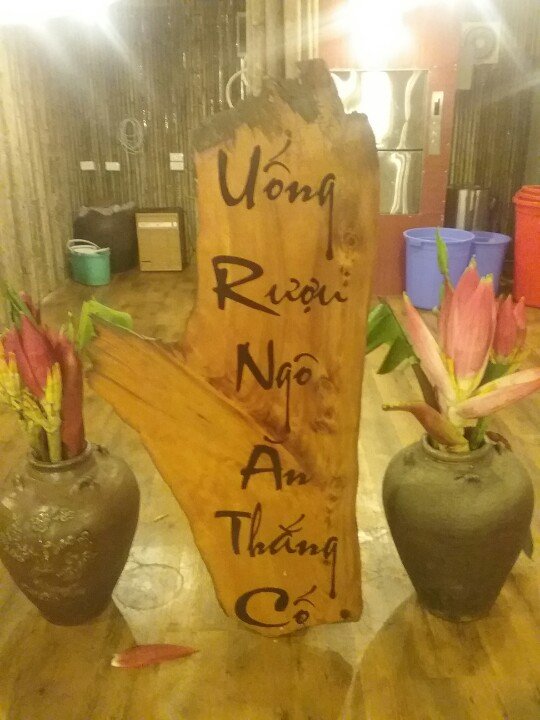 Uống
Rượu
Ngô
Ăn
Thắng
Cố